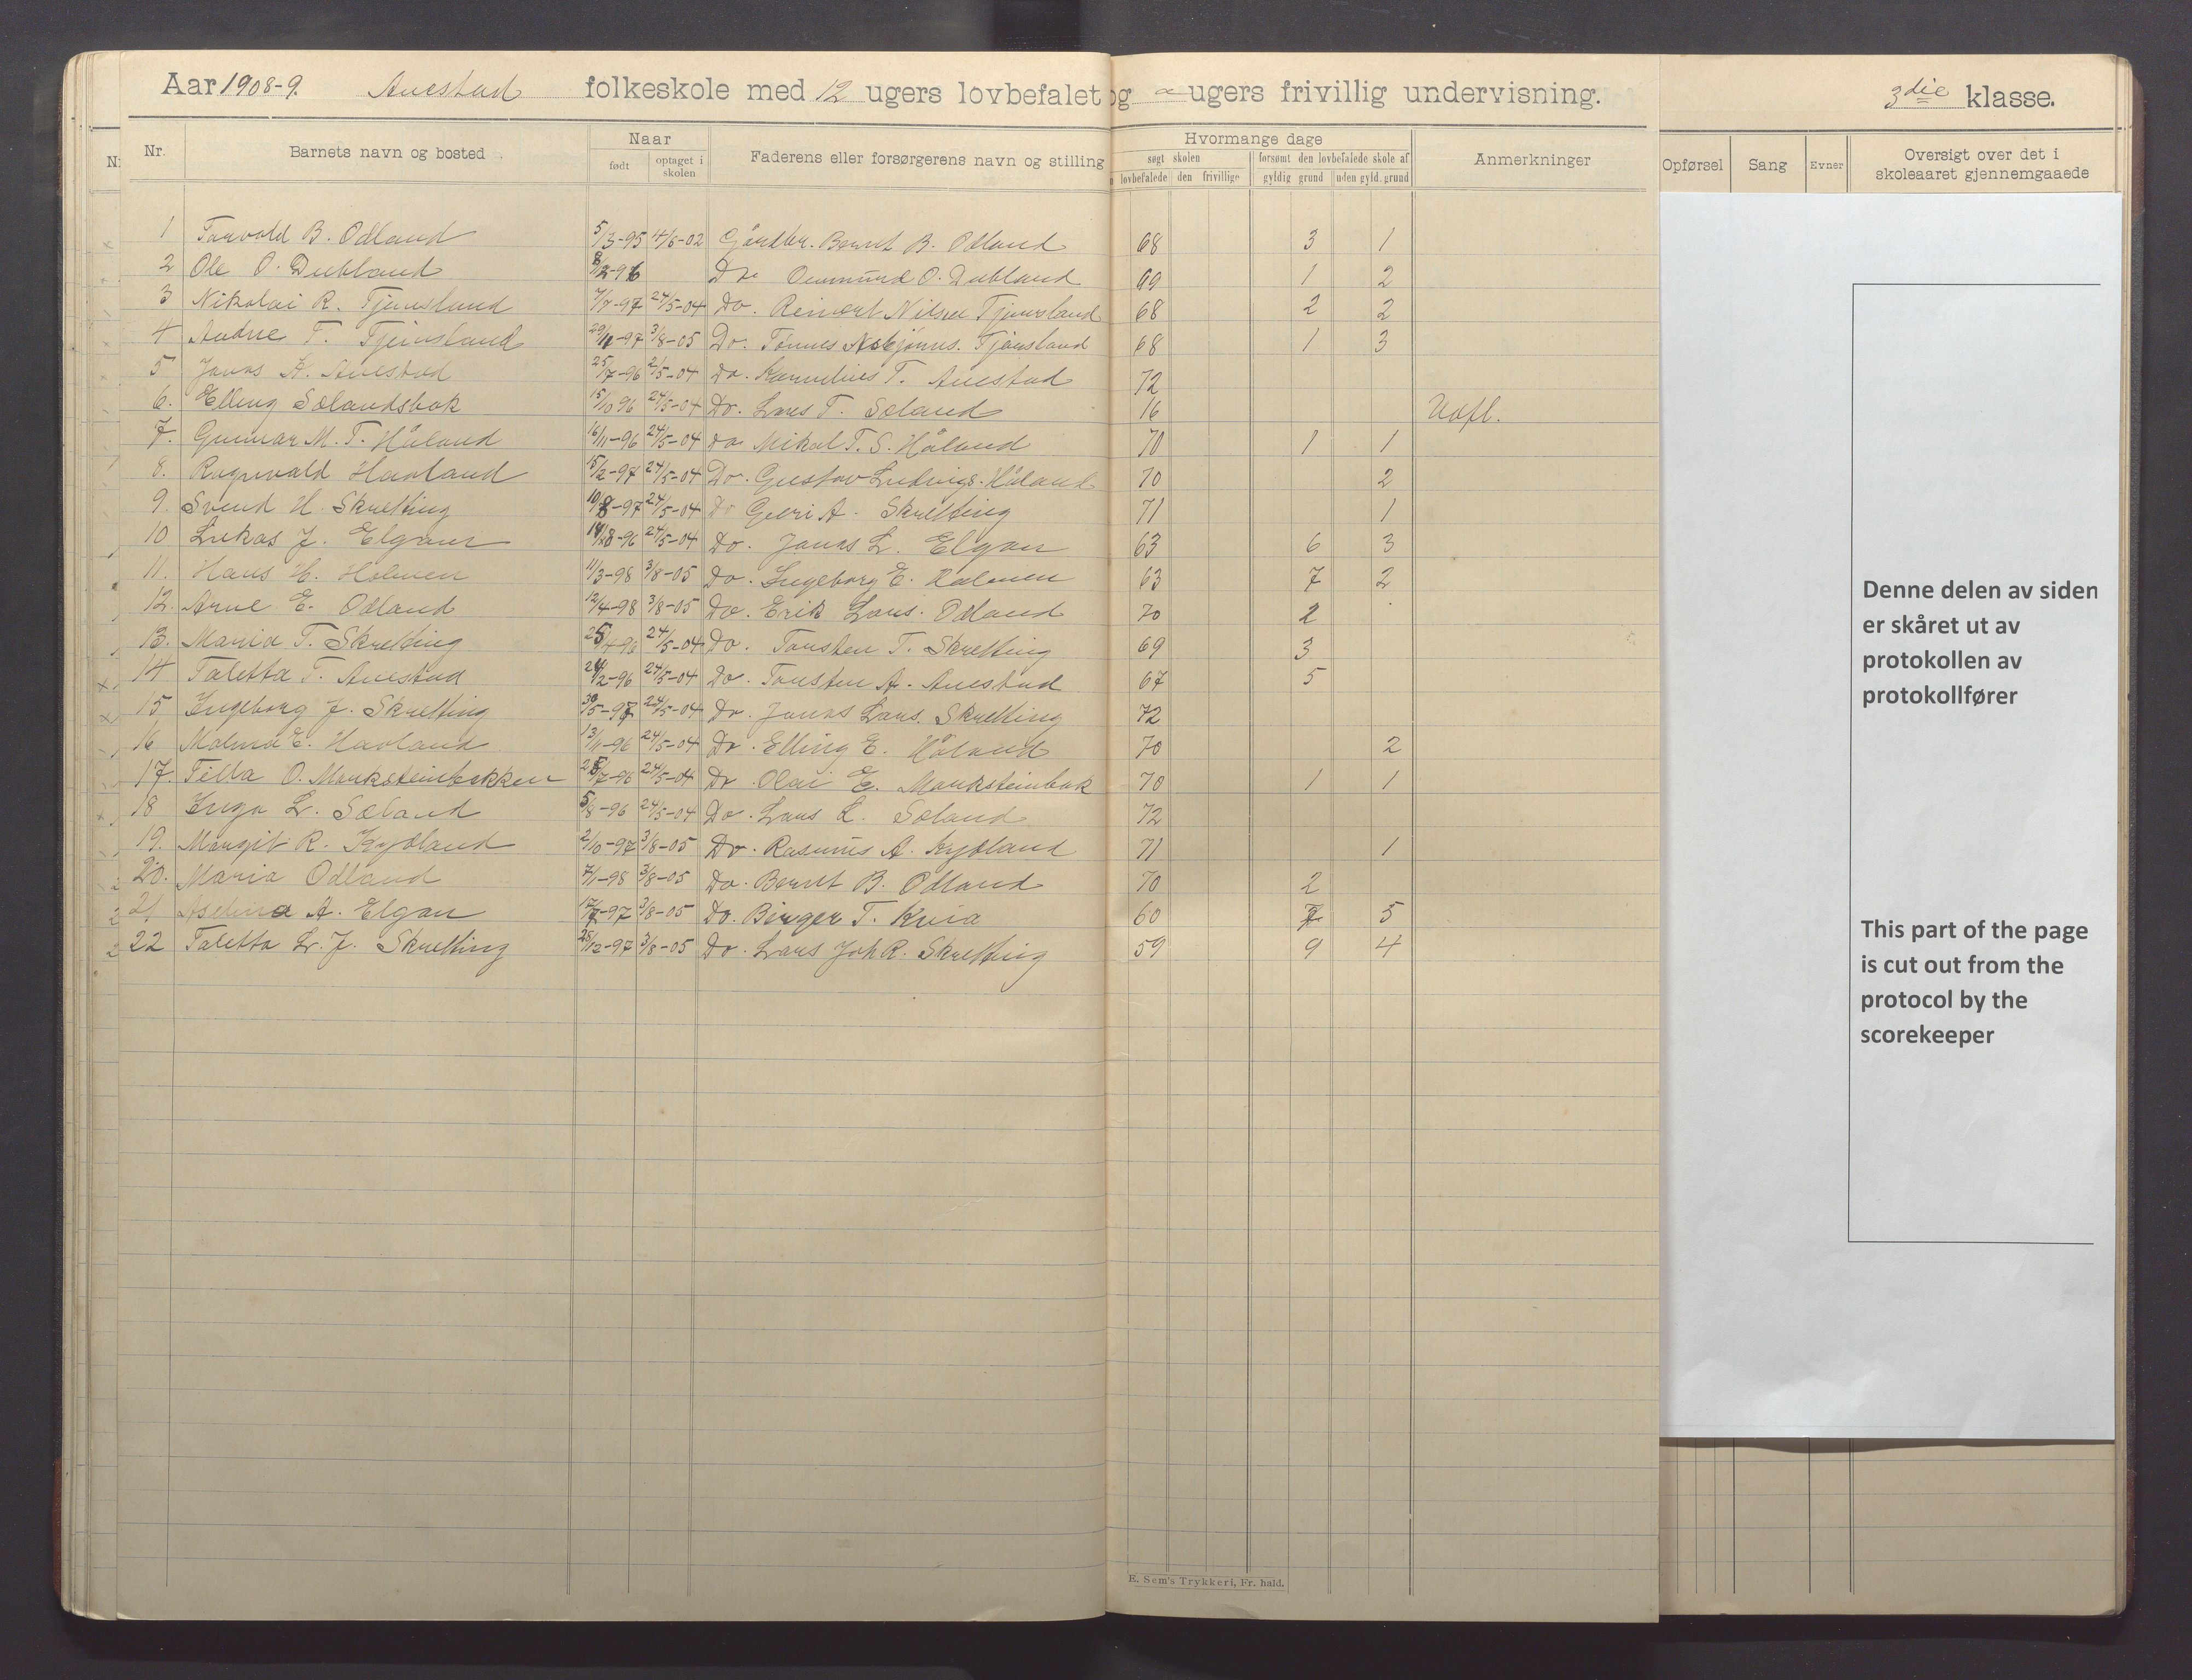 Aar 1908-9. Auestad folkeskole med 12 ugers lovbefalet og ugers frivillig undervisning. 3die klasse.
Nr. Barnets navn og bosted Naar Faderens eller forsørgerens navn og stilling Hvormange dage Anmerkninger Opførsel Sang Evner Oversigt over det i skoleaaret gjennemgaaede
født optaget i skolen søgt skolen forsømt den lovbefalede skole af
lovbefalede den frivillige gyldig grund uden gyld. grund
1 Torvald B. Odland 5/3-95 4/6-02 Gårdbr. Bernt B. Odland 68 3 1
2 Ole O. Dubland 8/12-96 Do Ommund O. Dubland 69 1 2
3 Nikolai R. Tjensland 7/7-97 24/5-04 Do. Reinert Nilsen Tjensland 68 2 2
4 Andre T. Tjensland 29/11-97 3/8-05 Do. Tønnes Asbjønns. Tjånsland 68 1 3
5 Jonas K. Auestad 25/7-96 2/5-04 Do. Kornelius T. Auestad 72
6. Elling Sælandsbak 15/10 96 24/5-04 Do. Lars T. Sæland 16 Udfl.
7. Gunnar M. T. Håland 16/11-96 24/5-04 Do Mikal T. S. Håland 70 1 1
8. Ragnvald Haaland 15/2-97 24/5-04 Do. Gustav Ludvigs. Håland 70 2
9. Svend H. Skretting 10/8-97 24/5-04 Do Geeri A. Skretting 71 1
10 Lukas J. Elgan 14/8-96 24/5-04 Do. Jonas L. Elgan 63 6 3
11. Hans H. Holmen 11/3-98 3/8-05 Do. Ingeborg E. Holmen 63 7 2
12. Arne E. Odland 12/4-98 3/8-05 Do. Erik Lars. Odland 70 2
13. Maria T. Skretting 25/4-96 24/5-04 Do. Torsten T. Skretting 69 3
14 Taletta T. Auestad 24/2-96 24/5-04 Do. Torsten A. Auestad 67 5
15 Ingeborg J. Skretting 30/5-97 24/5-04 Do. Jonas Lars. Skretting 72
16 Malena E. Haaland 13/11-96 24/5-04 Do. Elling E. Håland 70 2
17. Tilla O. Marksteinbakken 28/7-96 24/5-04 Do Olai E. Marksteinbak 70 1 1
18 Inga L. Sæland 5/8-96 24/5-04 Do. Lars L. Sæland 72
19. Margit R. Kydland 2/10-97 3/8-05 Do. Rasmus A. Kydland 71 1
20. Maria Odland 7/1-98 3/8-05 Do. Bernt B. Odland 70 2
21. Aselina A. Elgan 17/7-97 3/8-05 Do. Birger T. Kvia 60 7 5
22 Taletta L. J. Skretting 28/12-97 3/8-05 Do. Lars Joh R. Skretting 59 9 4
E. Sem's Trykkeri, Fr. hald.
Denne delen av siden
er skåret ut av
protokollen av
protokollfører
This part of the page
is cut out from the
protocol by the
scorekeeper